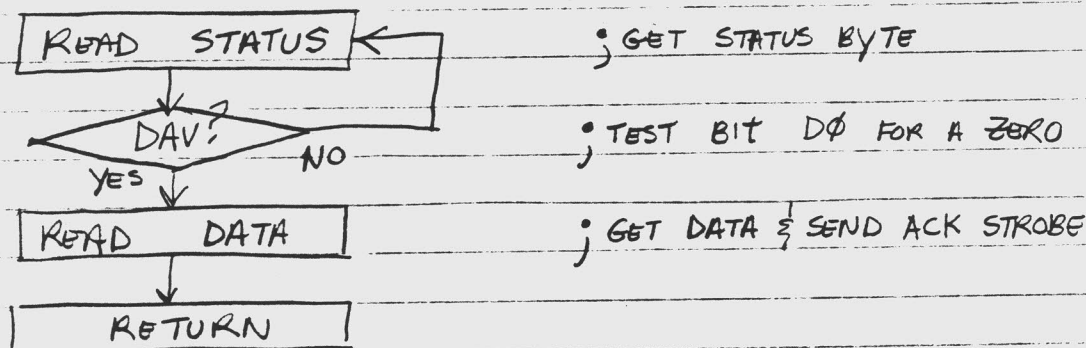 READ STATUS ; GET STATUS BYTE
DAV? ; TEST BIt DØ FOR A ZERO
NO
YES
READ DATA ; GET DATA & SEND ACK STROBE
RETURN